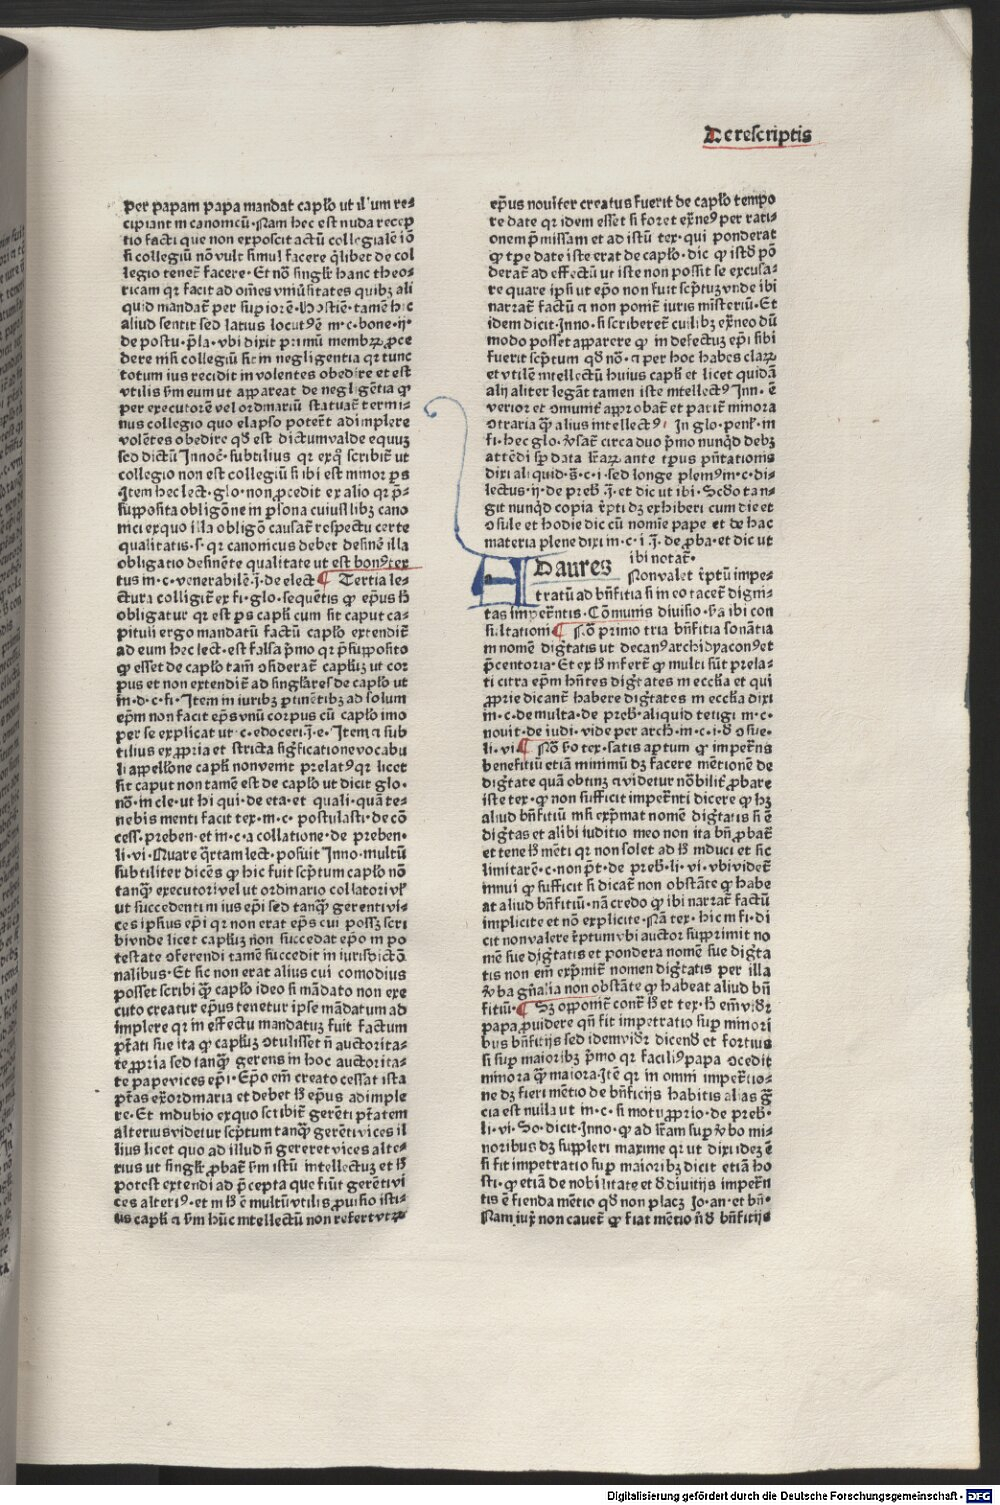 De rescriptis
per papam papa mandat capło ut il'um re⸗
cipiant in canonicū·Nam hec est nuda recep
tio facti que non exposcit actū collegialē iō
si collegiū nō vult simul facere q̄liber de col
legio tenet̄ facere·Et nō singlr̄ hanc theo⸗
ricam qr facit ad om̄es vniūsitates quibꝫ ali
quid mandat̄ per supiorē·hostiē·tamē hic
aliud sentit sed latius locut⁹ē in·c·bone·ij·
de postu·p̄la·vbi dixit primū membꝝ ꝓce
dere nisi collegiū sit in negligentia qr tunc
totum ius recidit in volentes obedire et est
vtilis s̄m eum ut appareat de negligētia ꝙ
per executorē vel ordinariū statuat̄ termi⸗
nus collegio quo elapso potert̄ adimplere
volētes obedire qd̄ est dictum valde equuꝫ
sed dictū Innoc̄·subtilius qr exq̄ scribit̄ ut
collegio non est collegiū si ibi est minor ps
Item hec lect·glo·non ꝓcedit ex alio qr p̄⸗
supposita obligōne in psona cuiuslibꝫ cano
nici ex quo illa obligō causat̄ respectu certe
qualitatis·s·qr canonicus debet desinē illa
obligatio desinēte qualitate ut est bon⁹tex
tus in·c·venerabilē·j̄·de elect ¶ Tertia le⸗
ctura colligit̄ ex fi·glo·sequētis ꝙ ep̄us hꝰ
obligatur qr est ps capłi cum sit caput ca⸗
pituli ergo mandatū factū capło extendit̄
ad eum hec lect·est falsa p̄mo qr p̄supposito
ꝙ esset de capło tam̄ ↄsiderat̄ capłuꝫ ut cor
pus et non extendit̄ ad singłares de capło ut
in·d·c·fi·Item in iuribꝫ ptinētibꝫ ad solum
ep̄m non facit ep̄s vnū corpus cū capło imo
per se explicat ut·c·edoceri·j̄·e·Item a sub
tilius ex ꝓpria et stricta significatione vocabu
li appellōne capłi non venit prelat⁹ qr licet
sit caput non tamē est de capło ut dicit glo·
nō·in cle·ut hi qui·de eta·et quali·quā te⸗
nebis menti facit tex·in·c·postulasti·de cō
cess·preben·et in·c·a collatione·de preben·
li·vi·Quare q̄rtam lect·posuit Inno·multū
subtiliter dicēs ꝙ hic fuit scp̄tum capło nō
tanq̄ꝫ executori vel ut ordinario collatori vł
ut succedenti in ius ep̄i sed tanq̄ꝫ gerenti vi⸗
ces ipsius ep̄i qr non erat ep̄s cui possꝫ scri
bi vnde licet capłuꝫ non succedat ep̄o in po
testate ↄferendi tamē succedit in iurisdictō
nalibus·Et sic non erat alius cui comodius
posset scribi q̄ꝫ capło ideo si mādato non exe
cuto creatur ep̄us tenetur ipse mādatum ad
implere qr in effectu mandatuꝫ fuit factum
ptāti sue ita ꝙ capłuꝫ ↄtulisset n̄ auctorita⸗
te ꝓpria sed tanq̄ꝫ gerens in hoc auctorita⸗
te pape vices ep̄i·Ep̄o em̄ creato cessat ista
ptās ex̄ordinaria et debet hꝰ ep̄us adimple
re·Et in dubio ex quo scribit̄ gerēti ptātem
alterius videtur scp̄tum tanq̄ꝫ gerēti vices il
lius licet quo ad illud n̄ gereret vices alte⸗
rius ut singlr̄ ꝓbat̄ s̄m istū intellectuꝫ et hꝰ
potest extendi ad p̄cepta que fiūt gerēti vi
ces alteri⁹·et in hꝰ ē multū vtilis ꝓuisio isti⸗
us capłi a s̄m hūc intellectū non refert vtꝝ
ep̄us nouiter creatus fuerit de capło tempo
re date qr idem esset si foret ex̄ne⁹ per rati⸗
onem p̄missam et ad istū tex·qui ponderat
ꝙ tp̄e date iste erat de capło·dic ꝙ istð pō
derat̄ ad effectū ut iste non possit se excusa⸗
re quare ipsi ut ep̄o non fuit scp̄tuꝫ vnde ibi
narrat̄ factū a non ponit̄ iuris misteriū·Et
idem dicit·Inno·si scriberet̄ cuilibꝫ ex̄neo dū
modo posset apparere ꝙ in defectuꝫ ep̄i sibi
fuerit scp̄tum qd̄ nō·a per hoc habes claꝝ
et vtilē intellectū huius capłi et licet quidā
alij aliter legāt tamen iste intellect⁹ Inn·ē
verior et ↄmunit̄ approbat̄ et patit̄ minora
ↄtraria q̄ꝫ alius intellect⁹· In glo·penł·in
fi·hec glo·v̄sat̄ circa duo p̄mo nunqd̄ debꝫ
attēdi sp̄ data lr̄aꝝ ante tp̄us pn̄tationis
dixi aliquid·s̄·c·i·sed longe pleni⁹in·c·di⸗
lectus·ij·de preb̄·j̄·et dic ut ibi·Scd̄o tan⸗
git nunqd̄ copia r̄pti dꝫ exhiberi cum die et
ↄsule et hodie dic cū nomīe pape et de hac
materia plene dixi in·c·i·j̄·de ꝓba·et dic ut
ibi notat̄·
AD aures
Non valet r̄ptū impe⸗
tratū ad bn̄fitia si in eo tacet̄ digni⸗
tas impetrantis·Cōmunis diuisio·s̄a ibi con
sultationi ¶ Nō primo tria bn̄fitia sonātia
in nomē digtatis ut decan⁹archidyacon⁹et
p̄centoria·Et ex hꝰ infert̄ ꝙ multi sūt prela⸗
ti citra ep̄m hn̄tes digtates in ecclīa et qui
ꝓprie dicant̄ habere digtates in ecclīa dixi
in·c·de multa·de preb̄·aliquid tetigi in·c·
nouit·de iudi·vide per arch·in·c·i·ð ↄsue·
li·vi ¶ Nō bō tex·satis aptum ꝙ impetr̄ns
benefitiū etiā minimū dꝫ facere mētionē de
digtate quā obtinꝫ a videtur nōbilit̄ ꝓbare
iste tex·ꝙ non sufficit impetr̄nti dicere ꝙ hꝫ
aliud bn̄fitiū nisi exp̄mat nomē digtatis si ē
digtas et alibi iuditio meo non ita bn̄ ꝓbat̄
et tene hꝰ mēti qr non solet ad hꝰ induci et sic
limitarē·c·non pt̄·de preb̄·li·vi·vbi videt̄
innui ꝙ sufficit si dicat̄ non obstāte ꝙ habe
at aliud bn̄fitiū·nā credo ꝙ ibi narrat̄ factū
implicite et nō explicite·Nā tex·hic in fi·di
cit non valere r̄ptum vbi auctor supprimit no
mē sue digtatis et pondera nomē sue digta
tis non em̄ exp̄mit̄ nomen digtatis per illa
v̄ba gn̄alia non obstāte ꝙ habeat aliud bn̄
fitiū· ¶ Sꝫ opponit̄ cont̄ hꝰ et tex·hꝰ em̄ vidr̄
papa ꝓuidere qn̄ fit impetratio sup minori
bus bn̄fitijs sed idem vidr̄ dicend̄ et fortius
si sup maioribꝫ p̄mo qr facili⁹ papa ↄcedit
minora q̄ꝫ maiora·Itē qr in omni impetr̄tio⸗
ne dꝫ fieri mētio de bn̄ficijs habitis alias gr̄
cia est nulla ut in·c·si motu ꝓprio·de preb̄·
li·vi·So·dicit·Inno·ꝙ ad lr̄am sup v̄bo mi⸗
noribus dꝫ suppleri maxime qr ut dixi idez ē
si fit impetratio sup maioribꝫ dicit etiā ho
sti·ꝙ etiā de nobilitate et ð diuitijs impetr̄n
tis ē fienda mētio qd̄ non placꝫ Io·an·et bn̄·
Nam iuꝝ non cauet̄ ꝙ fiat mētio n̄ð bn̄fitijs
Digitalisierung gefördert durch die Deutsche Forschungsgemeinschaft - DFG